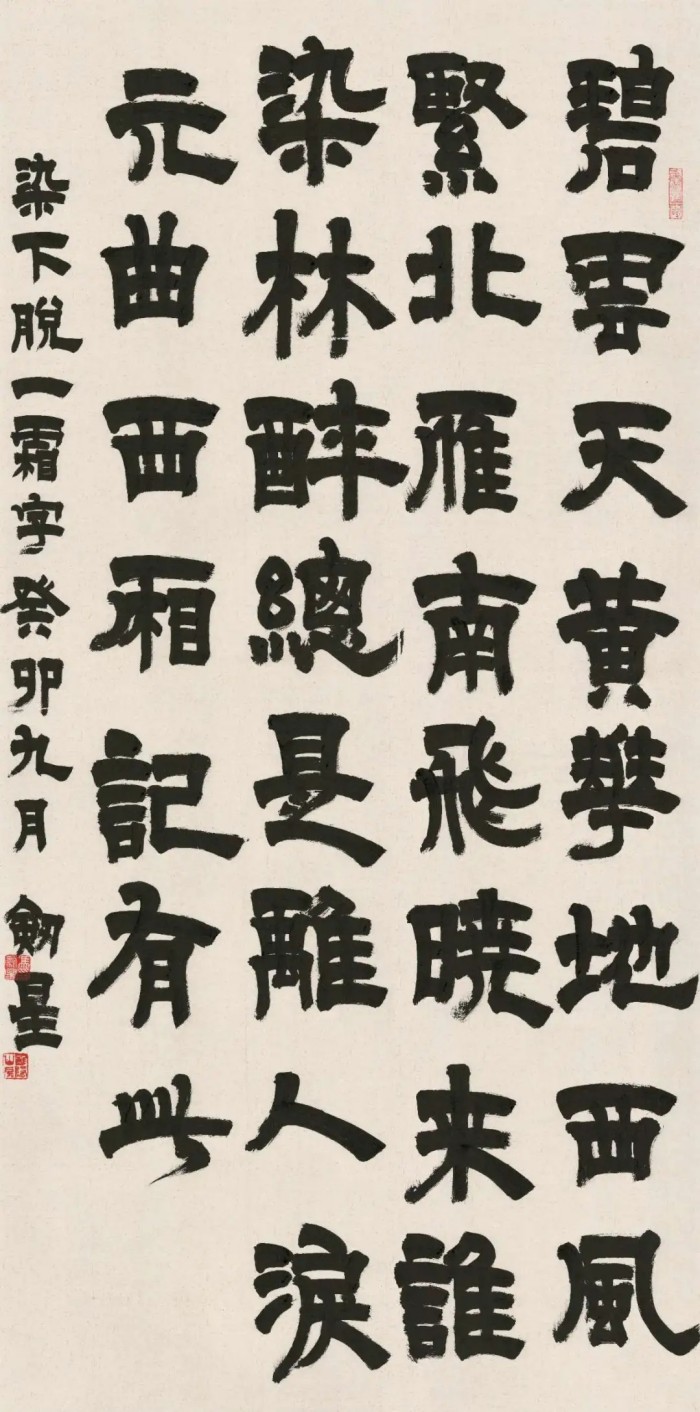 碧雲天黄華地西風
緊北雁南飛曉来誰
染林醉總是離人淚
元曲西厢記有此
染下脫一霜字癸卯九月 劍星